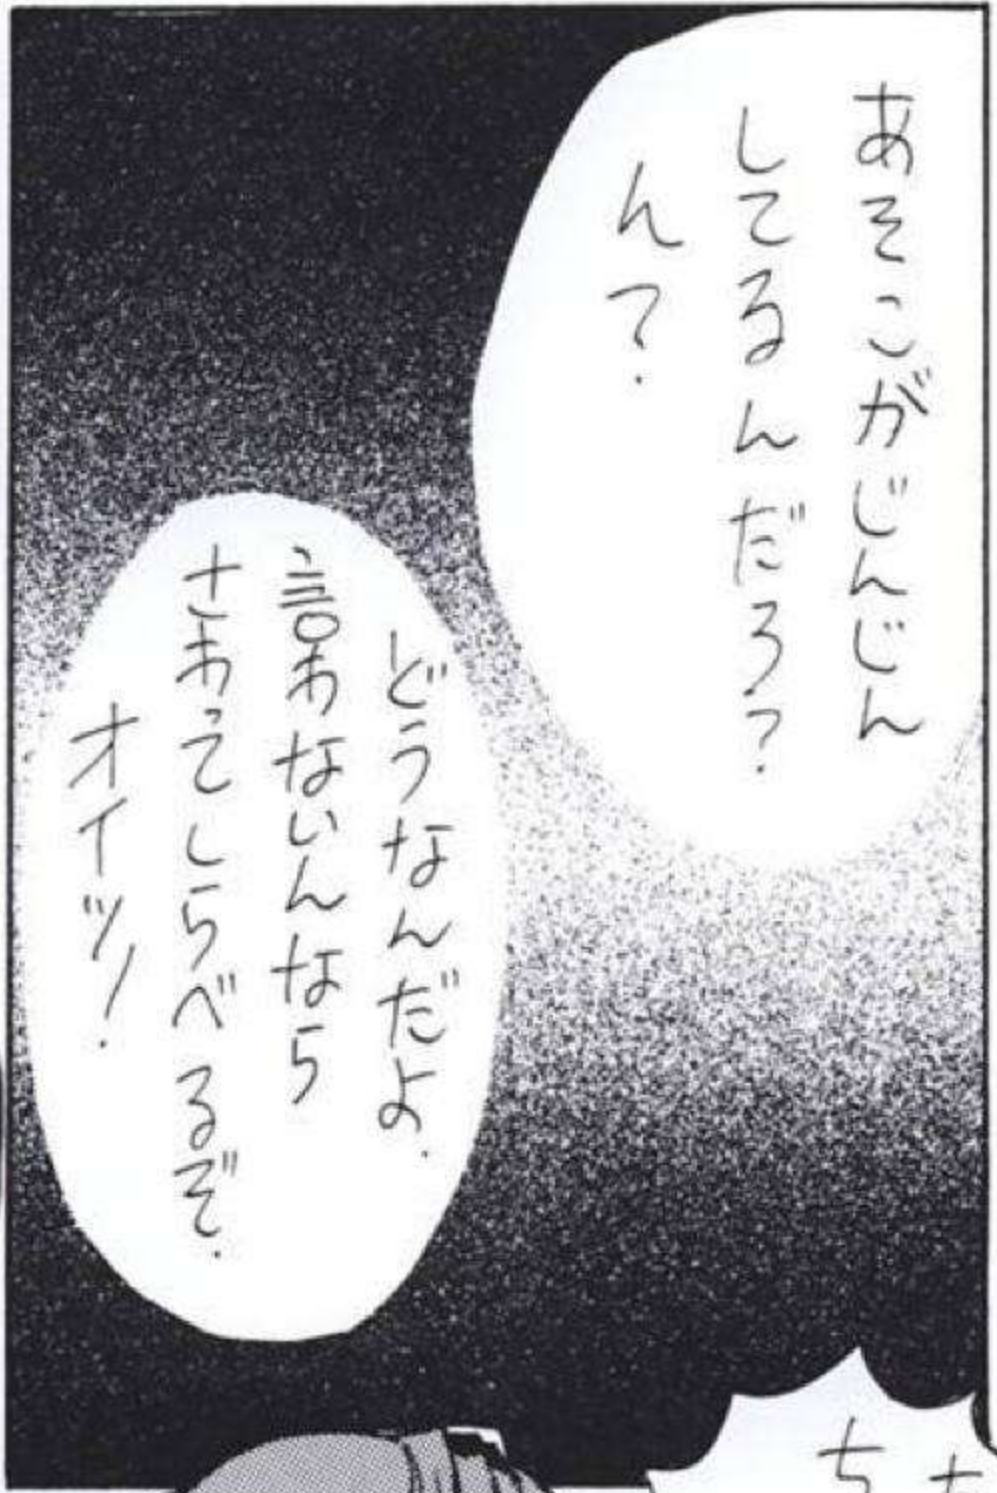 あそこがじんじん
してるんだろ?
ん?
どうなんだよ.
言わないんなら
さわってしらべるぞ.
オイッ!